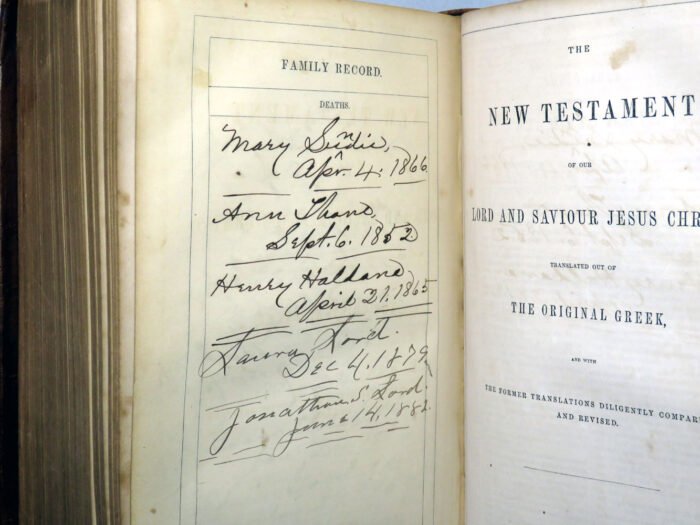 FAMILY RECORD.
DEATHS.
Mary
Apr. 4. 1866.
Ann Thane,
Sept. 6. 1852.
Henry Haldane
April 21, 1865
Laura Lord.
Dec 4, 1879
Jonathan S. Lord.
June 14, 1882.
THE
NEW TESTAMENT
OF OUR
LORD AND SAVIOUR JESUS CHR
TRANSLATED OUT OF
THE ORIGINAL GREEK,
AND WITH
THE FORMER TRANSLATIONS DILIGENTLY COMPAR
AND REVISED.